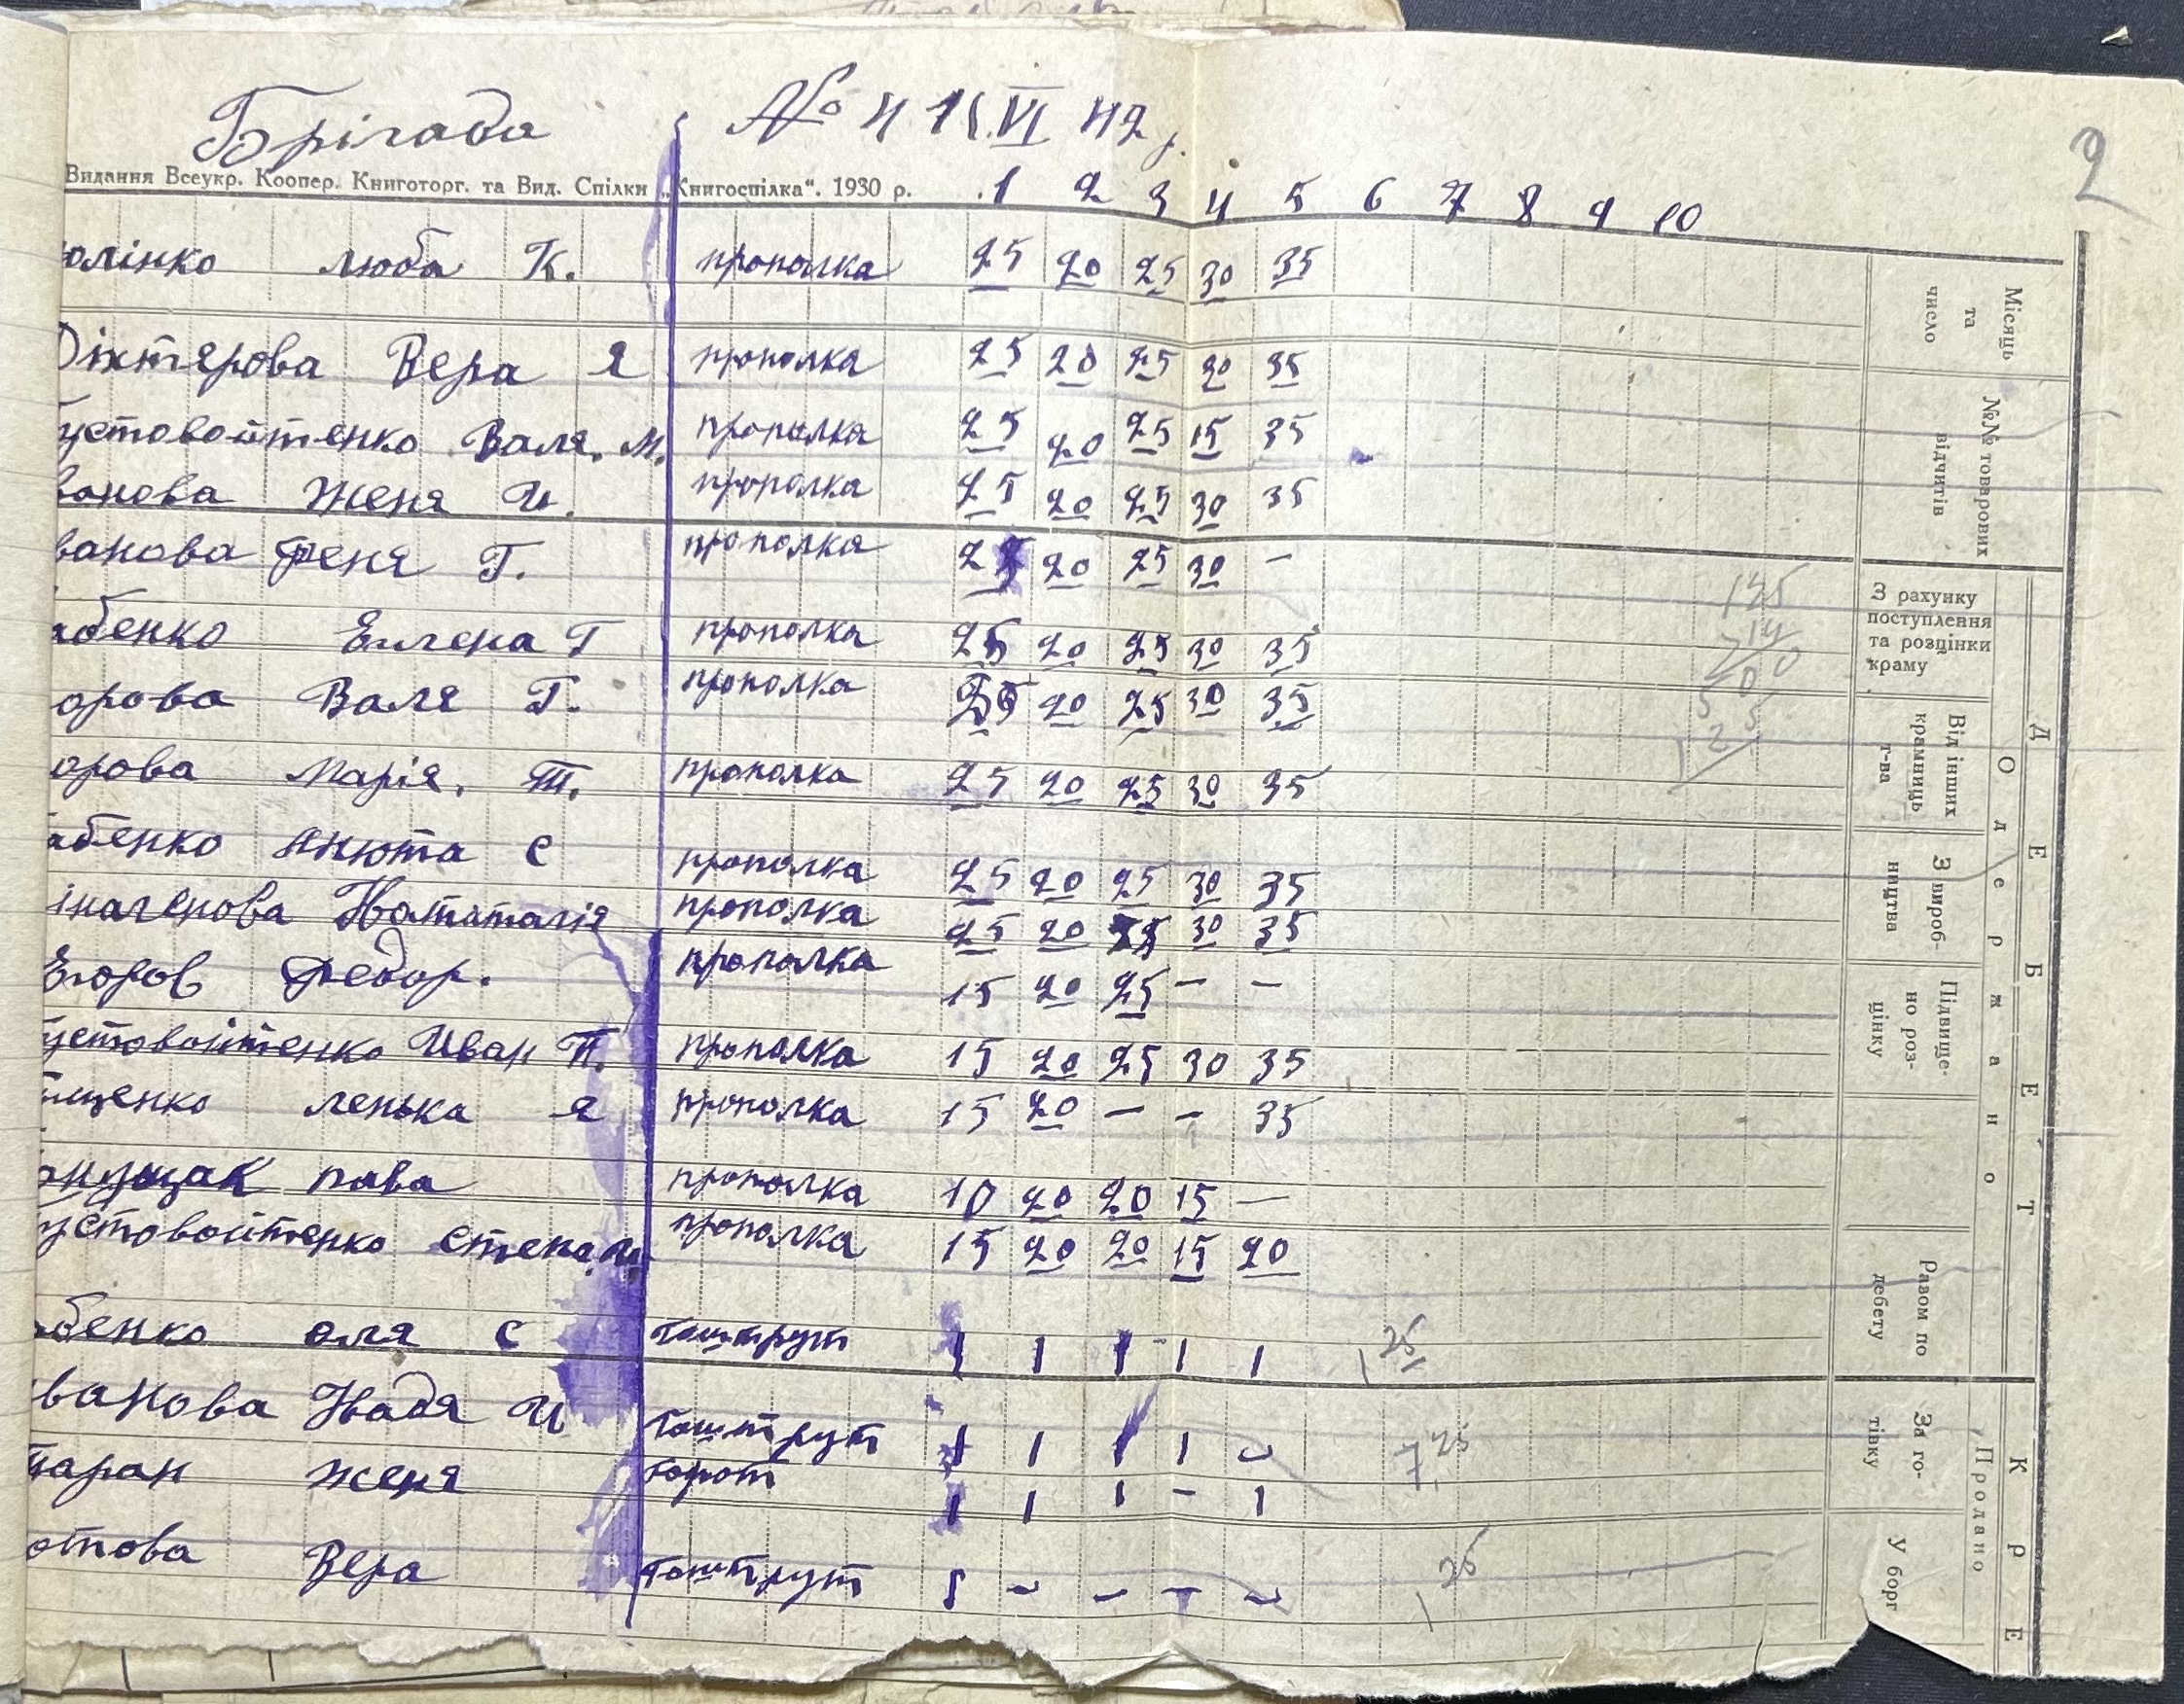 Брігада № 4 1 VI 42 р.
2
Видання Всеукр. Коопер. Книготорг. та Вид. Спілки „Книгоспілка“. 1930 р.
1 2 3 4 5 6 7 8 9 10
олінко люба К. прополка 25 20 25 30 35
Діхтярова Вера Я прополка 25 20 25 30 35
устовойтенко Валя. М. прополка 25 20 25 15 35
ванова Женя И. прополка 25 20 25 30 35
ванова Феня Г. прополка 25 20 25 30 –
абенко Елена Г прополка 25 20 25 30 35
орова Валя Г. прополка 25 20 25 30 35
орова Марія. Т. прополка 25 20 25 30 35
абенко Анюта С прополка 25 20 25 30 35
прополка 25 20 25 30 35
Егоров Федор. прополка 15 20 25 – –
устовойтенко Иван П. прополка 15 20 25 30 35
щенко ленька Я прополка 15 20 – – 35
пава прополка 10 20 20 15 –
устовойтенко степа. И. прополка 15 20 20 15 20
бенко оля С 1 1 1 1 1 1 25
ванова Надя И 1 1 1 1 – 7,25
таран Женя 1 1 1 – 1
отова Вера 1 – – – – 1 25
Місяць та число
№№ товарових відчитів
ДЕБЕТ
Одержано
З рахунку поступлення та розцінки краму
Від інших крамниць т-ва
З вироб- ництва
Підвище- но роз- цінку
Разом по дебету
КРЕ
Продано
За го- тівку
У борг